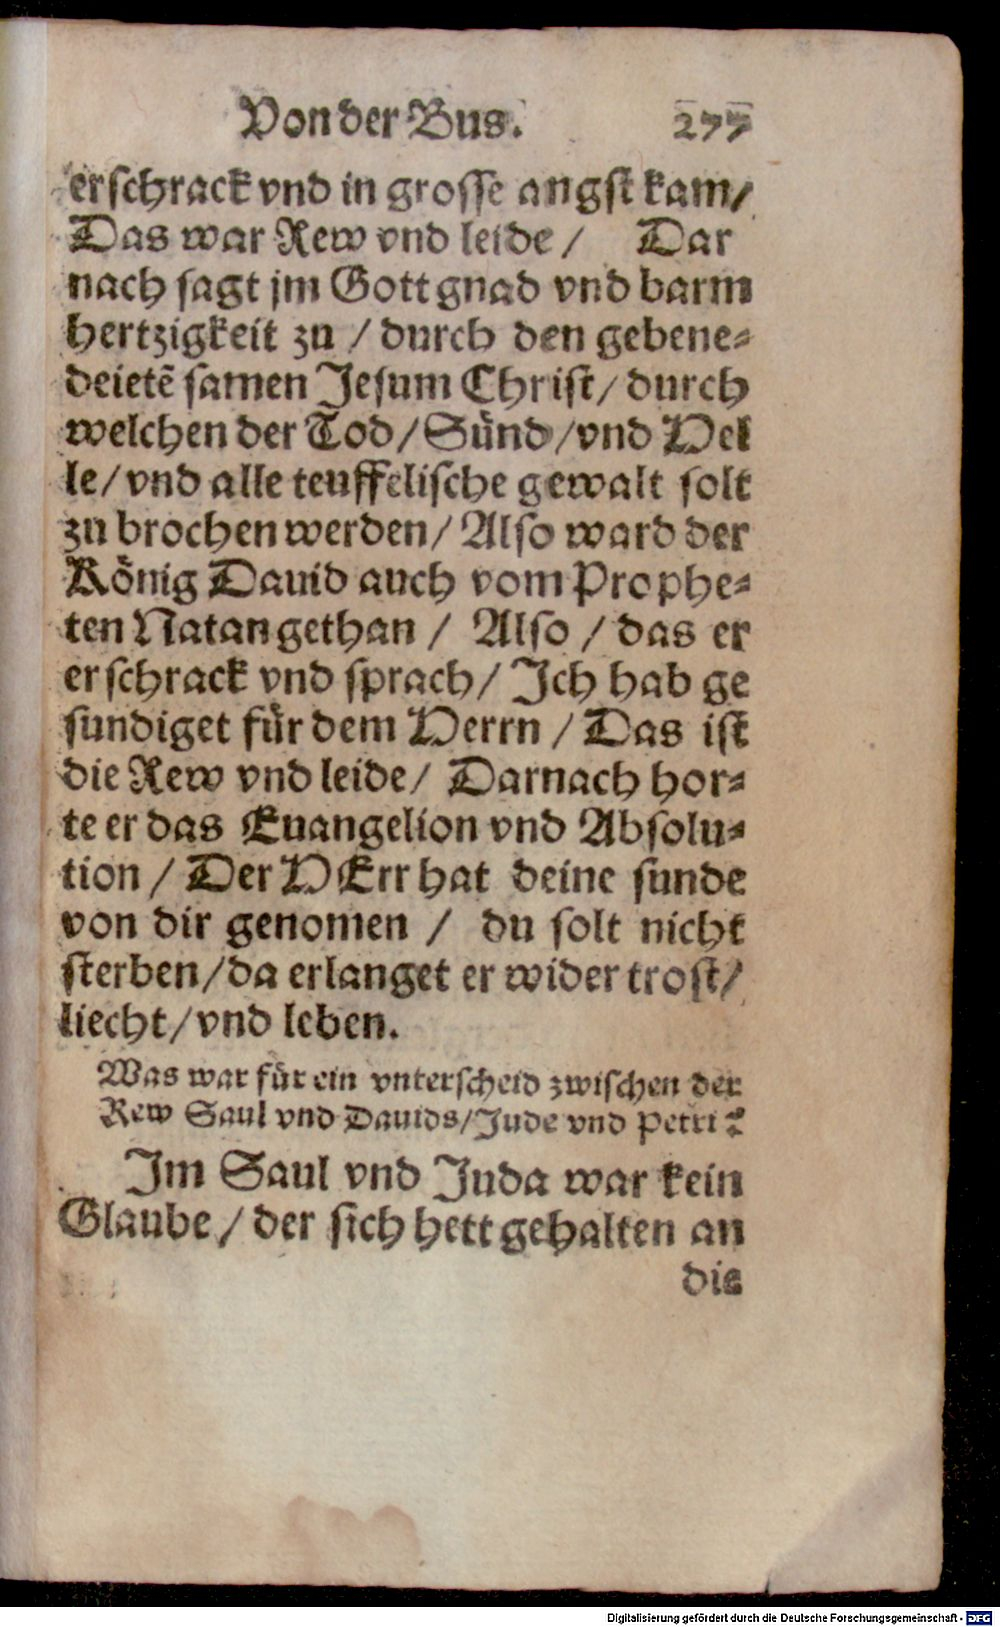 Von der Bus. 277
erschrack vnd in grosse angst kam/
Das war Rew vnd leide / Dar
nach sagt jm Gott gnad vnd barm
hertzigkeit zu / durch den gebene⸗
deietē samen Jesum Christ/ durch
welchen der Tod/Sünd/vnd Hel
le/vnd alle teuffelische gewalt solt
zu brochen werden/ Also ward der
König Dauid auch vom Prophe⸗
ten Natan gethan / Also / das er
erschrack vnd sprach/ Ich hab ge
sundiget für dem Herrn / Das ist
die Rew vnd leide/ Darnach hor⸗
te er das Euangelion vnd Absolu⸗
tion / Der HErr hat deine sunde
von dir genomen / du solt nicht
sterben/da erlanget er wider trost/
liecht/vnd leben.
Was war für ein vnterscheid zwischen der
Rew Saul vnd Dauids/Jude vnd Petri?
Im Saul vnd Juda war kein
Glaube/ der sich hett gehalten an
die
Digitalisierung gefördert durch die Deutsche Forschungsgemeinschaft - DFG